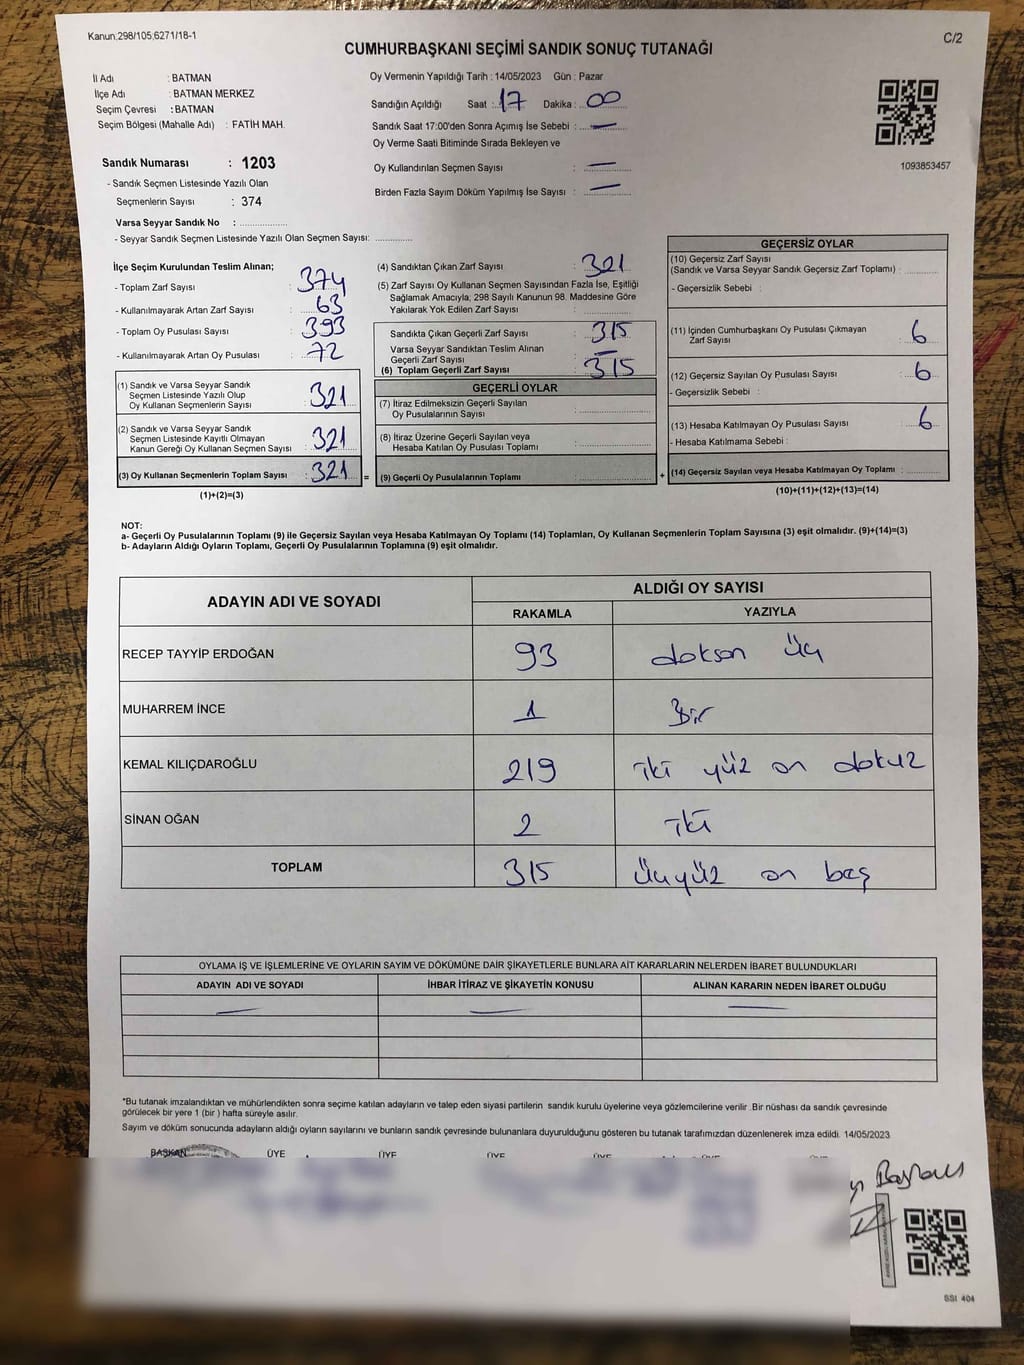 Kanun:298/105;6271/18-1
C/2
CUMHURBAŞKANI SEÇİMİ SANDIK SONUÇ TUTANAĞI
İl Adı : BATMAN
İlçe Adı : BATMAN MERKEZ
Seçim Çevresi : BATMAN
Seçim Bölgesi (Mahalle Adı) : FATİH MAH.
Oy Vermenin Yapıldığı Tarih : 14/05/2023 Gün : Pazar
Sandığın Açıldığı Saat : 17 Dakika : 00
Sandık Saat 17:00'den Sonra Açımış İse Sebebi : —
Oy Verme Saati Bitiminde Sırada Bekleyen ve
Oy Kullandırılan Seçmen Sayısı : —
Birden Fazla Sayım Döküm Yapılmış İse Sayısı : —
1093853457
Sandık Numarası : 1203
- Sandık Seçmen Listesinde Yazılı Olan
Seçmenlerin Sayısı : 374
Varsa Seyyar Sandık No : ................
- Seyyar Sandık Seçmen Listesinde Yazılı Olan Seçmen Sayısı: .............
İlçe Seçim Kurulundan Teslim Alınan;
- Toplam Zarf Sayısı : 374
- Kullanılmayarak Artan Zarf Sayısı : 63
- Toplam Oy Pusulası Sayısı : 393
- Kullanılmayarak Artan Oy Pusulası : 72
(1) Sandık ve Varsa Seyyar Sandık
Seçmen Listesinde Yazılı Olup
Oy Kullanan Seçmenlerin Sayısı : 321
(2) Sandık ve Varsa Seyyar Sandık
Seçmen Listesinde Kayıtlı Olmayan
Kanun Gereği Oy Kullanan Seçmen Sayısı : 321
(3) Oy Kullanan Seçmenlerin Toplam Sayısı : 321 =
(1)+(2)=(3)
(4) Sandıktan Çıkan Zarf Sayısı : 321
(5) Zarf Sayısı Oy Kullanan Seçmen Sayısından Fazla İse, Eşitliği
Sağlamak Amacıyla; 298 Sayılı Kanunun 98. Maddesine Göre
Yakılarak Yok Edilen Zarf Sayısı : ................
Sandıkta Çıkan Geçerli Zarf Sayısı : 315
Varsa Seyyar Sandıktan Teslim Alınan
Geçerli Zarf Sayısı : —
(6) Toplam Geçerli Zarf Sayısı : 315
GEÇERLİ OYLAR
(7) İtiraz Edilmeksizin Geçerli Sayılan
Oy Pusulalarının Sayısı : ................
(8) İtiraz Üzerine Geçerli Sayılan veya
Hesaba Katılan Oy Pusulası Toplamı : ................
(9) Geçerli Oy Pusulalarının Toplamı : ................ +
GEÇERSİZ OYLAR
(10) Geçersiz Zarf Sayısı
(Sandık ve Varsa Seyyar Sandık Geçersiz Zarf Toplamı) : .............
- Geçersizlik Sebebi :
(11) İçinden Cumhurbaşkanı Oy Pusulası Çıkmayan
Zarf Sayısı : 6
(12) Geçersiz Sayılan Oy Pusulası Sayısı : 6
- Geçersizlik Sebebi :
(13) Hesaba Katılmayan Oy Pusulası Sayısı : 6
- Hesaba Katılmama Sebebi :
(14) Geçersiz Sayılan veya Hesaba Katılmayan Oy Toplamı : ............
(10)+(11)+(12)+(13)=(14)
NOT:
a- Geçerli Oy Pusulalarının Toplamı (9) ile Geçersiz Sayılan veya Hesaba Katılmayan Oy Toplamı (14) Toplamları, Oy Kullanan Seçmenlerin Toplam Sayısına (3) eşit olmalıdır. (9)+(14)=(3)
b- Adayların Aldığı Oyların Toplamı, Geçerli Oy Pusulalarının Toplamına (9) eşit olmalıdır.
ADAYIN ADI VE SOYADI
ALDIĞI OY SAYISI
RAKAMLA YAZIYLA
RECEP TAYYİP ERDOĞAN 93 doksan üç
MUHARREM İNCE 1 Bir
KEMAL KILIÇDAROĞLU 219 iki yüz on dokuz
SİNAN OĞAN 2 iki
TOPLAM 315 Üçyüz on beş
OYLAMA İŞ VE İŞLEMLERİNE VE OYLARIN SAYIM VE DÖKÜMÜNE DAİR ŞİKAYETLERLE BUNLARA AİT KARARLARIN NELERDEN İBARET BULUNDUKLARI
ADAYIN ADI VE SOYADI İHBAR İTİRAZ VE ŞİKAYETİN KONUSU ALINAN KARARIN NEDEN İBARET OLDUĞU
— — —
*Bu tutanak imzalandıktan ve mühürlendikten sonra seçime katılan adayların ve talep eden siyasi partilerin sandık kurulu üyelerine veya gözlemcilerine verilir .Bir nüshası da sandık çevresinde
görülecek bir yere 1 (bir ) hafta süreyle asılır.
Sayım ve döküm sonucunda adayların aldığı oyların sayılarını ve bunların sandık çevresinde bulunanlara duyurulduğunu gösteren bu tutanak tarafımızdan düzenlenerek imza edildi. 14/05/2023
BAŞKAN ÜYE ÜYE ÜYE ÜYE ÜYE
SSI 404